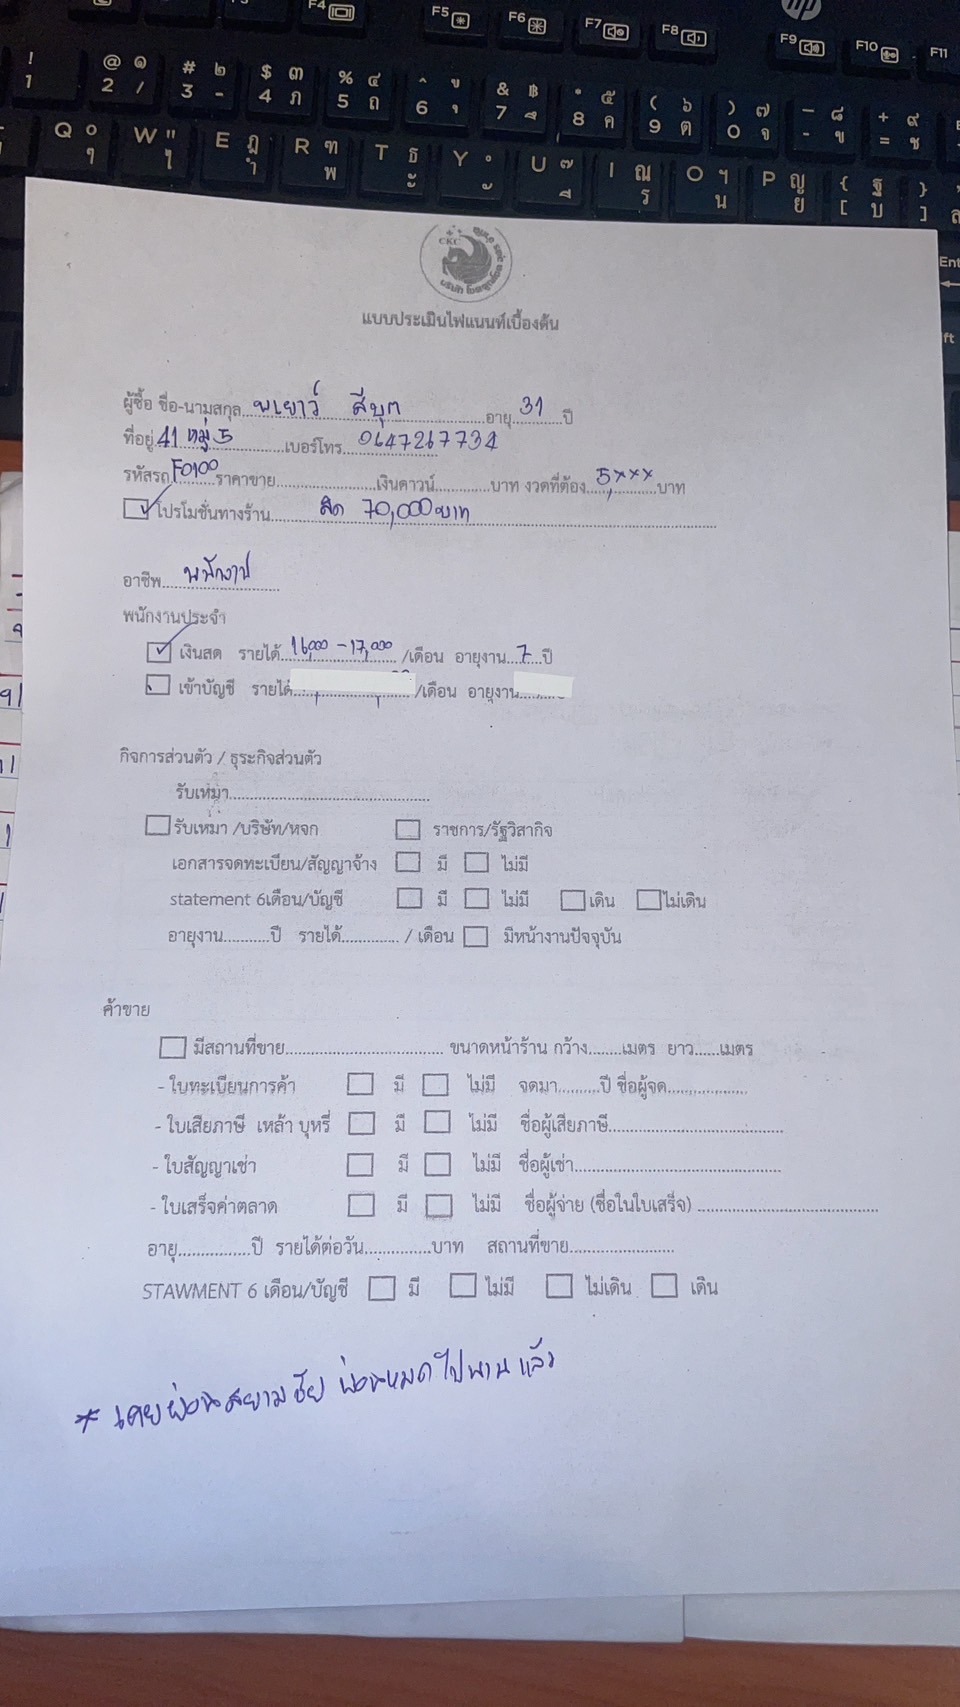 F4 F5 F6 F7 F8 F9 F10 F11
! 1 @ ๑ 2 / # ๒ 3 - $ ๓ 4 ภ % ๔ 5 ถ ^ ู 6 ุ & ฿ 7 ึ * ๕ 8 ค ( ๖ 9 ต ) ๗ 0 จ _ ๘ - ข + ๙ = ช
Q ๐ ๆ W " ไ E ฎ ำ R ฑ พ T ธ ะ Y ํ ั U ๊ ี I ณ ร O ฯ น P ญ ย { ฐ [ บ } ]
CKC
แบบประเมินไฟแนนท์เบื้องต้น
ผู้ซื้อ ชื่อ-นามสกุล พเยาว์ สีบุต อายุ 31 ปี
ที่อยู่ 41 หมู่ 5 เบอร์โทร 0647267734
รหัสรถ F0100 ราคาขาย เงินดาวน์ บาท งวดที่ต้อง 5,xxx บาท
โปรโมชั่นทางร้าน สด 70,000 บาท
อาชีพ พนักงาน
พนักงานประจำ
เงินสด รายได้ 16,000 - 17,000 /เดือน อายุงาน 7 ปี
เข้าบัญชี รายได้ /เดือน อายุงาน
กิจการส่วนตัว / ธุระกิจส่วนตัว
รับเหมา
รับเหมา /บริษัท/หจก ราชการ/รัฐวิสากิจ
เอกสารจดทะเบียน/สัญญาจ้าง มี ไม่มี
statement 6เดือน/บัญชี มี ไม่มี เดิน ไม่เดิน
อายุงาน ปี รายได้ / เดือน มีหน้างานปัจจุบัน
ค้าขาย
มีสถานที่ขาย ขนาดหน้าร้าน กว้าง เมตร ยาว เมตร
- ใบทะเบียนการค้า มี ไม่มี จดมา ปี ชื่อผู้จด
- ใบเสียภาษี เหล้า บุหรี่ มี ไม่มี ชื่อผู้เสียภาษี
- ใบสัญญาเช่า มี ไม่มี ชื่อผู้เช่า
- ใบเสร็จค่าตลาด มี ไม่มี ชื่อผู้จ่าย (ชื่อในใบเสร็จ)
อายุ ปี รายได้ต่อวัน บาท สถานที่ขาย
STAWMENT 6 เดือน/บัญชี มี ไม่มี ไม่เดิน เดิน
* เคยผ่อนสยามชัย ผ่อนหมดไปนานแล้ว